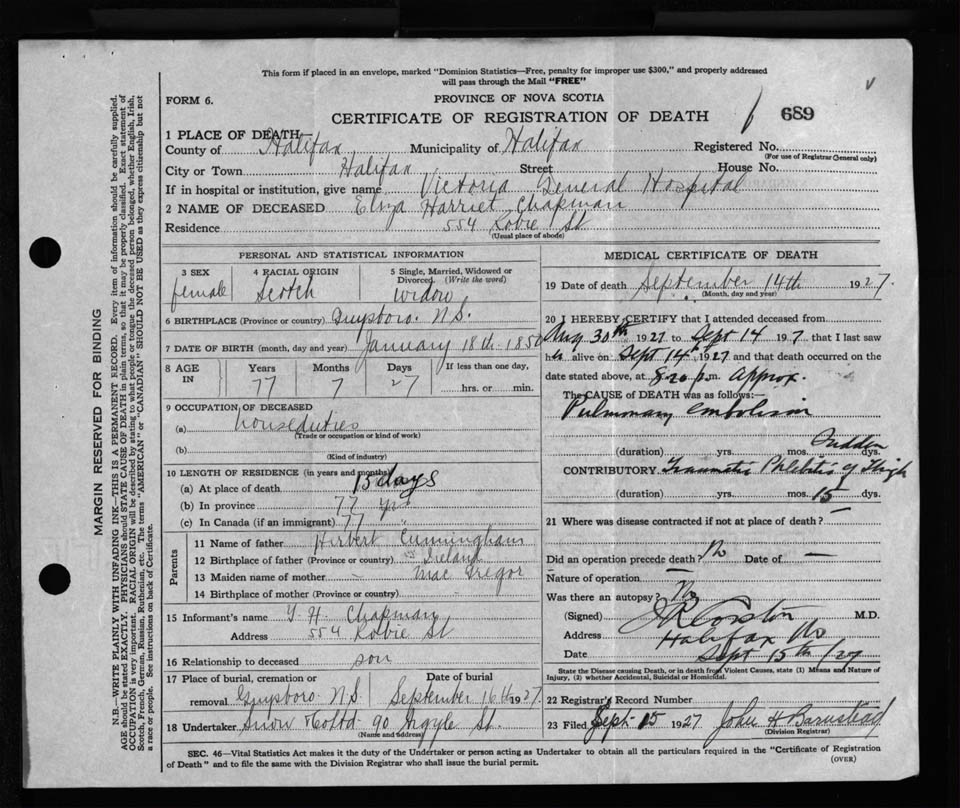 This form if placed in an envelope, marked "Dominion Statistics—Free, penalty for improper use $300," and properly addressed
will pass through the Mail "FREE"
FORM 6.
PROVINCE OF NOVA SCOTIA
CERTIFICATE OF REGISTRATION OF DEATH
689
1 PLACE OF DEATH—
County of Halifax Municipality of Halifax Registered No.
(For use of Registrar General only)
City or Town Halifax Street House No.
If in hospital or institution, give name Victoria General Hospital
2 NAME OF DECEASED Eliza Harriet Chapman
Residence 554 Robie St
(Usual place of abode)
PERSONAL AND STATISTICAL INFORMATION
3 SEX 4 RACIAL ORIGIN 5 Single, Married, Widowed or
Divorced. (Write the word)
female Scotch widow
6 BIRTHPLACE (Province or country) Guysboro. N.S.
7 DATE OF BIRTH (month, day and year) January 18th 1850
8 AGE IN Years Months Days If less than one day,
77 7 27 hrs. or min.
9 OCCUPATION OF DECEASED
(a) houseduties
(Trade or occupation or kind of work)
(b)
(Kind of industry)
10 LENGTH OF RESIDENCE (in years and months)
(a) At place of death 15 days
(b) In province 77 yrs
(c) In Canada (if an immigrant) 77 "
Parents
11 Name of father Herbert Cunningham
12 Birthplace of father (Province or country) Ireland
13 Maiden name of mother — Mac Gregor
14 Birthplace of mother (Province or country)
15 Informant's name H. Chapman
Address 554 Robie St
16 Relationship to deceased son
17 Place of burial, cremation or Date of burial
removal Guysboro. N.S. September 16th 1927
18 Undertaker Snow & Co Ltd 90 Argyle St.
(Name and address)
MEDICAL CERTIFICATE OF DEATH
19 Date of death September 14th 1927.
(Month, day and year)
20 I HEREBY CERTIFY that I attended deceased from
Aug 30th 1927 to Sept 14 1927 that I last saw
her alive on Sept 14th 1927 and that death occurred on the
date stated above, at p.m. Approx.
The CAUSE of DEATH was as follows:
Pulmonary embolism
(duration) yrs. mos. Sudden dys.
CONTRIBUTORY Traumatic Phlebitis of Thigh
(duration) yrs. mos. 15 dys.
21 Where was disease contracted if not at place of death? —
Did an operation precede death? No Date of —
Nature of operation —
Was there an autopsy? No
(Signed) Corston M.D.
Address Halifax NS
Date Sept 15th /27
State the Disease causing Death, or in death from Violent Causes, state (1) Means and Nature of
Injury, (2) whether Accidental, Suicidal or Homicidal.
22 Registrar's Record Number
23 Filed Sept. 15 1927 John H Barnstead
(Division Registrar)
SEC. 46—Vital Statistics Act makes it the duty of the Undertaker or person acting as Undertaker to obtain all the particulars required in the "Certificate of Registration
of Death" and to file the same with the Division Registrar who shall issue the burial permit.
(OVER)
MARGIN RESERVED FOR BINDING
N.B.—WRITE PLAINLY WITH UNFADING INK—THIS IS A PERMANENT RECORD. Every item of information should be carefully supplied.
AGE should be stated EXACTLY. PHYSICIANS should STATE CAUSE OF DEATH in plain terms, so that it may be properly classified. Exact statement of
OCCUPATION is very important. RACIAL ORIGIN will be described by stating to what people or tongue the deceased person belonged, whether English, Irish,
Scotch, French, German, Russian, Ruthenian, etc. The terms "AMERICAN" or "CANADIAN" SHOULD NOT BE USED as they express citizenship but not
a race or people. See instructions on back of Certificate.